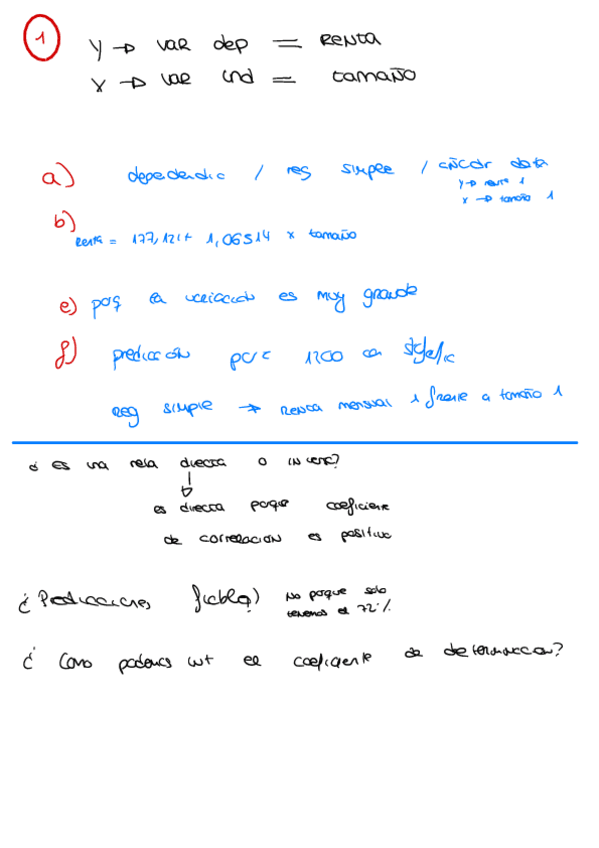 1
y → var dep = RENTA
x → var ind = tamaño
a) dependencia / reg simple / añadir data
y → renta 1
x → tamaño 1
b)
Renta = 177,121 + 1,06514 x tamaño
e) porq la variacion es muy grande
f) prediccion para 1200 en
Reg simple → Renta mensual 1 frente a tamaño 1
¿ es una rela directa o inversa?
es directa porque coeficiente
de correlacion es positivo
¿ Predicciones fiables?
No porque solo
tenemos el 72%
¿ Como podemos int el coeficiente de determinacion?